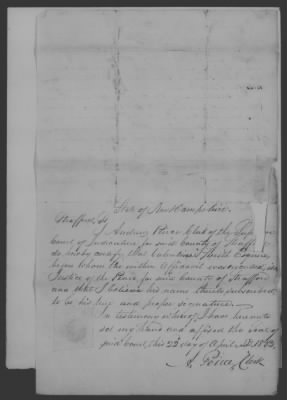 State of New Hampshire.
Strafford, ss
I Andrew Peirce Clerk of the Superior
Court of Judicature for said County of Strafford
do hereby certify that Valentine Smith Esquire,
before whom the within Affidavit was made, is a
Justice of the Peace for said County of Strafford
and that I believe his name thereto subscribed
to be his true and proper signature.
In testimony whereof I have hereunto
set my hand and affixed the seal of
said Court, this 22d day of April AD. 18
A. Peirce, Clerk